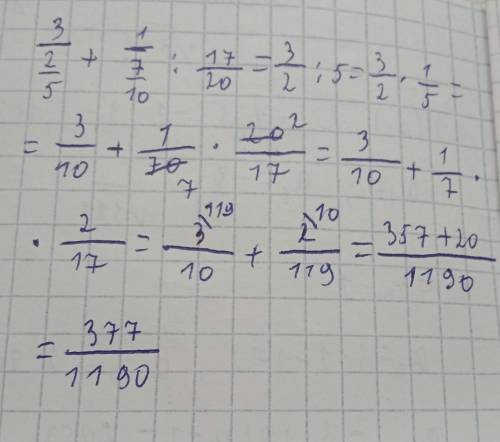 3/(2/5) + 1/(7/10) : 17/20 = 3/2 : 5 = 3/2 · 1/5 =
= 3/10 + 1/70 7 · 20 2/17 = 3/10 + 1/7 ·
· 2/17 = 3 119/10 + 2 10/119 = 357+20/1190
= 377/1190